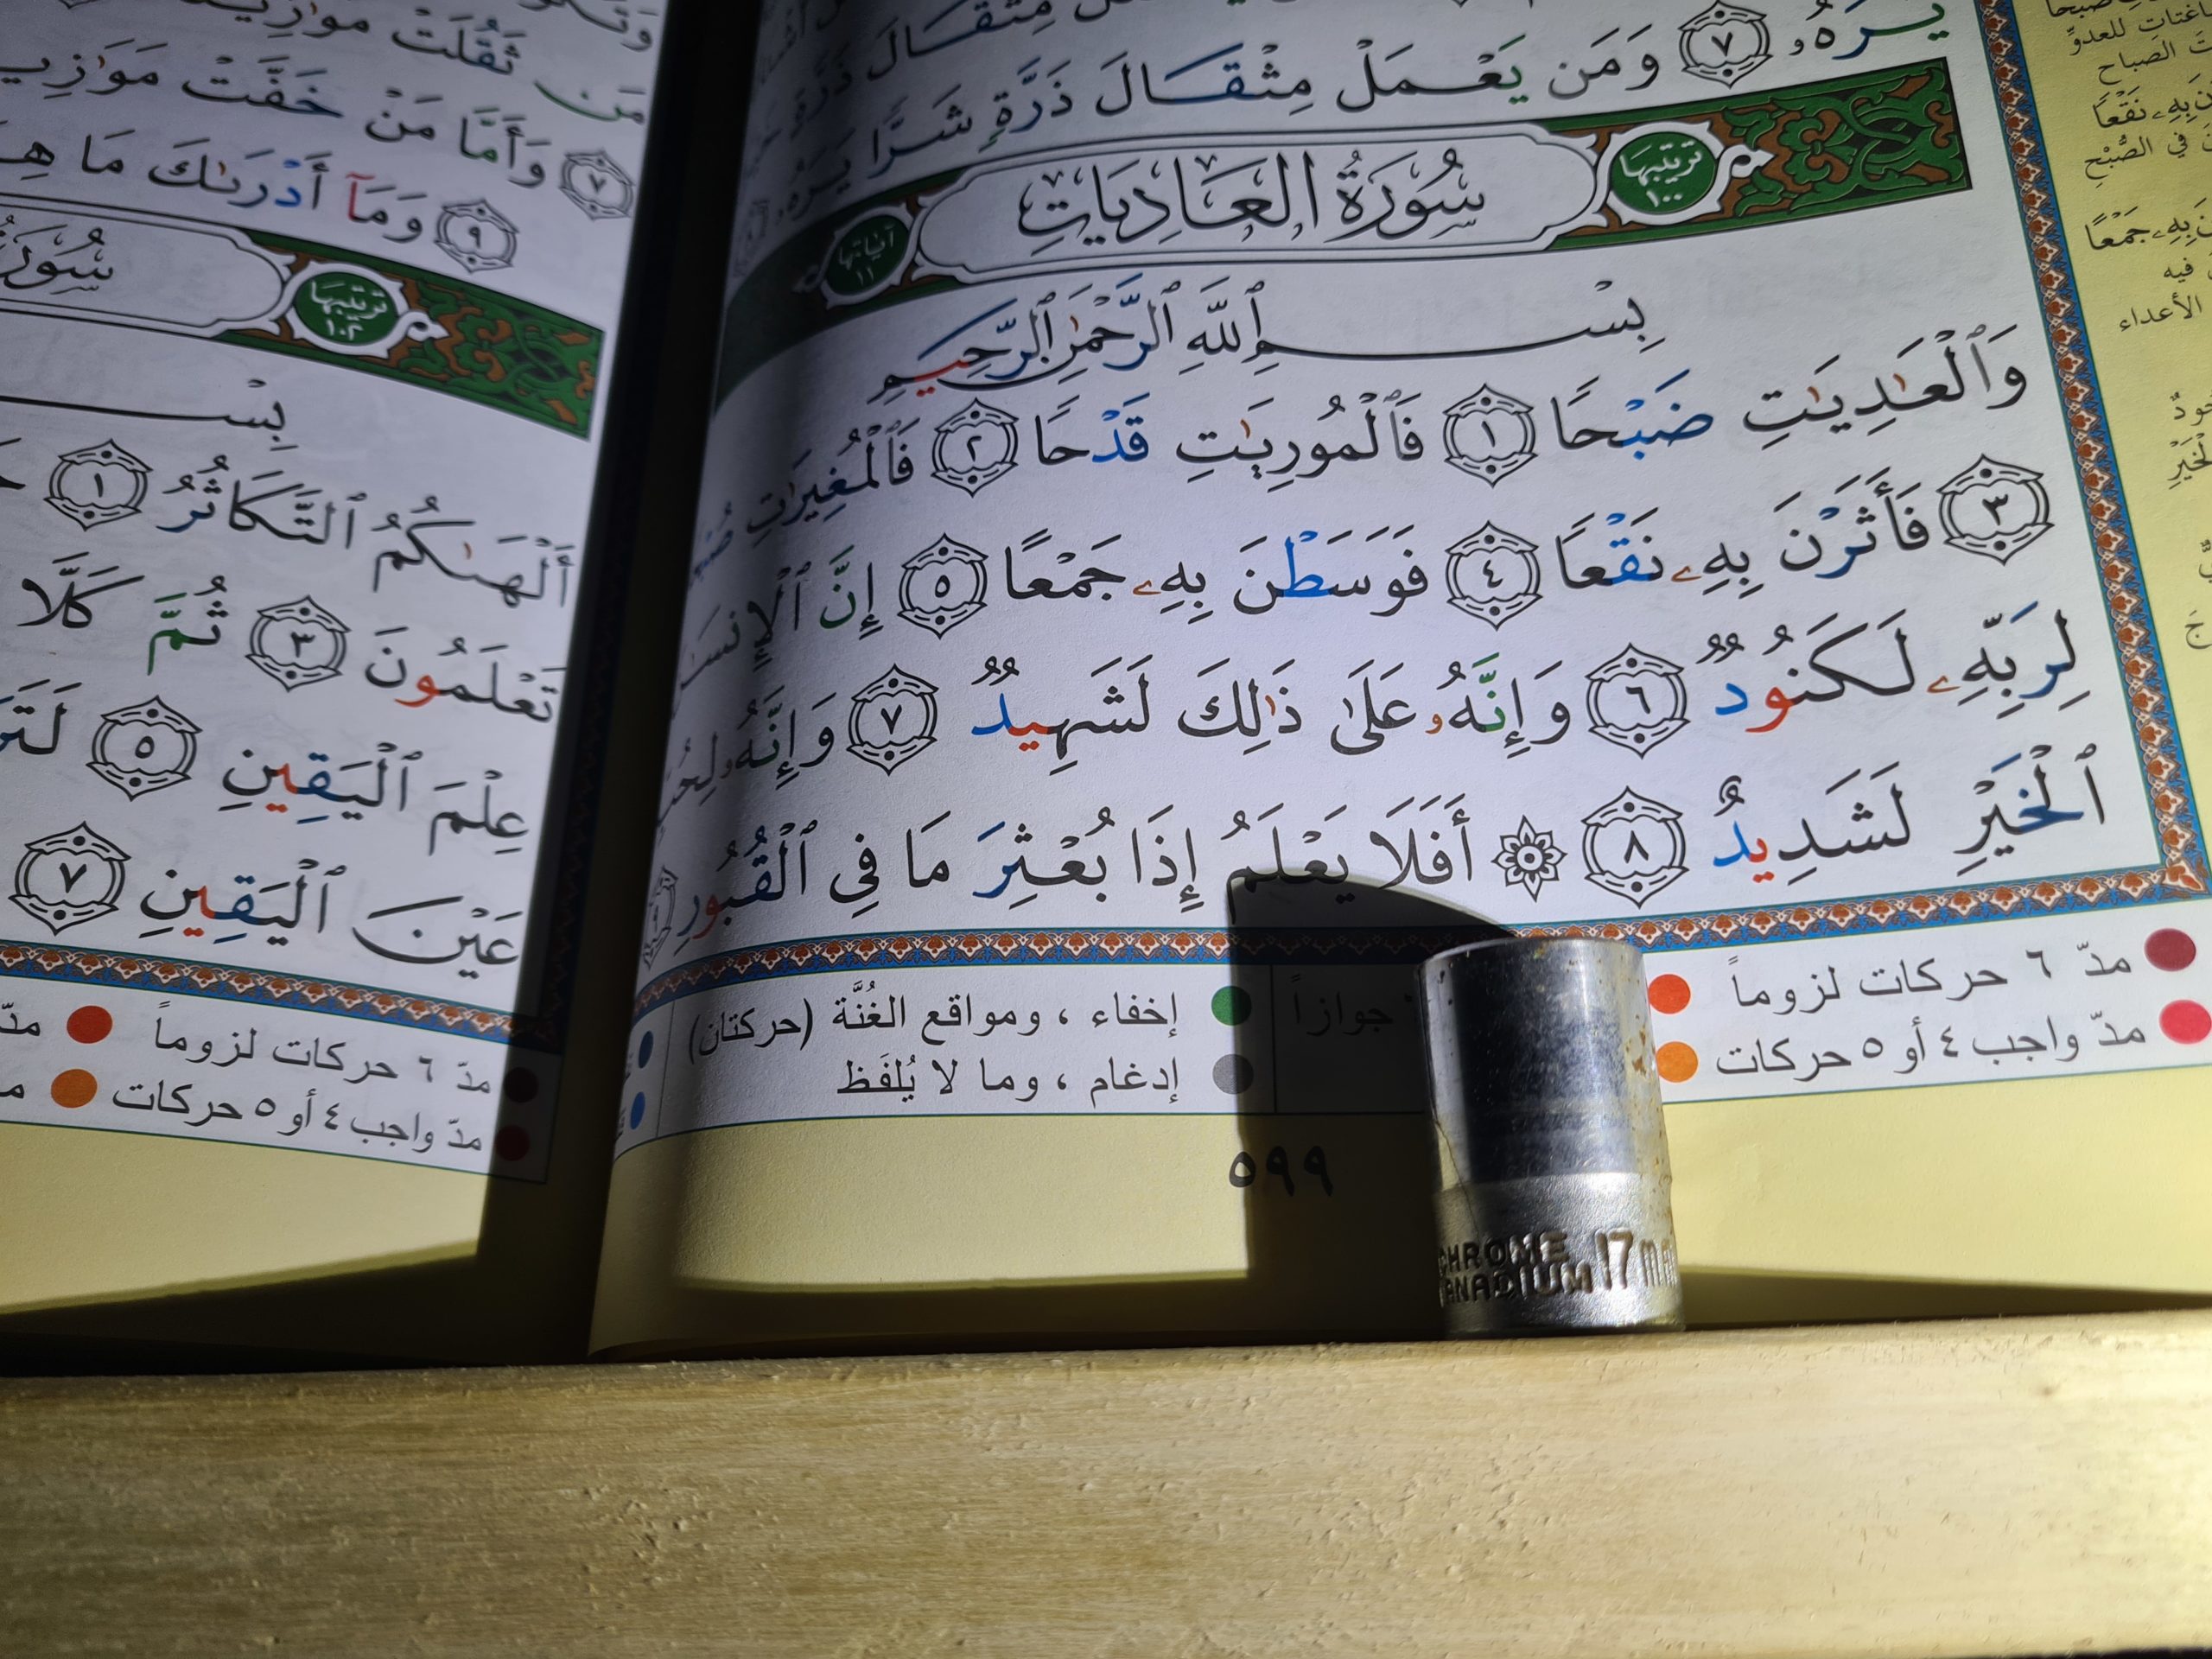 يَرَهُۥ ٧ وَمَن يَعْمَلْ مِثْقَالَ ذَرَّةٍ شَرًّا يَرَهُۥ
ترتيبها ١٠٠ سُورَةُ العَادِيَاتِ آياتها ١١
بِسْمِ ٱللَّهِ ٱلرَّحْمَٰنِ ٱلرَّحِيمِ
وَٱلْعَٰدِيَٰتِ ضَبْحًا ١ فَٱلْمُورِيَٰتِ قَدْحًا ٢ فَٱلْمُغِيرَٰتِ
٣ فَأَثَرْنَ بِهِۦ نَقْعًا ٤ فَوَسَطْنَ بِهِۦ جَمْعًا ٥ إِنَّ ٱلْإِنسَٰ
لِرَبِّهِۦ لَكَنُودٌ ٦ وَإِنَّهُۥ عَلَىٰ ذَٰلِكَ لَشَهِيدٌ ٧ وَإِنَّهُۥ
ٱلْخَيْرِ لَشَدِيدٌ ٨ ۞ أَفَلَا يَعْلَمُ إِذَا بُعْثِرَ مَا فِى ٱلْقُبُورِ
مدّ ٦ حركات لزوماً جوازاً إخفاء ، ومواقع الغُنَّة (حركتان)
مدّ واجب ٤ أو ٥ حركات إدغام ، وما لا يُلفَظ
٥٩٩
صبحا
للعدوّ
الصباح
بِهِۦ نَقْعًا
في الصُّبْحِ
بِهِۦ جَمْعًا
فيه
الأعداء
ثَقُلَتْ
٧ وَأَمَّا مَنْ خَفَّتْ
٩ وَمَآ أَدْرَىٰكَ مَا
ترتيبها ١٠٢
بِسْ
أَلْهَىٰكُمُ ٱلتَّكَاثُرُ ١
تَعْلَمُونَ ٣ ثُمَّ كَلَّا
عِلْمَ ٱلْيَقِينِ ٥
عَيْنَ ٱلْيَقِينِ ٧
مدّ ٦ حركات لزوماً
مدّ واجب ٤ أو ٥ حركات
CHROME
VANADIUM 17mm